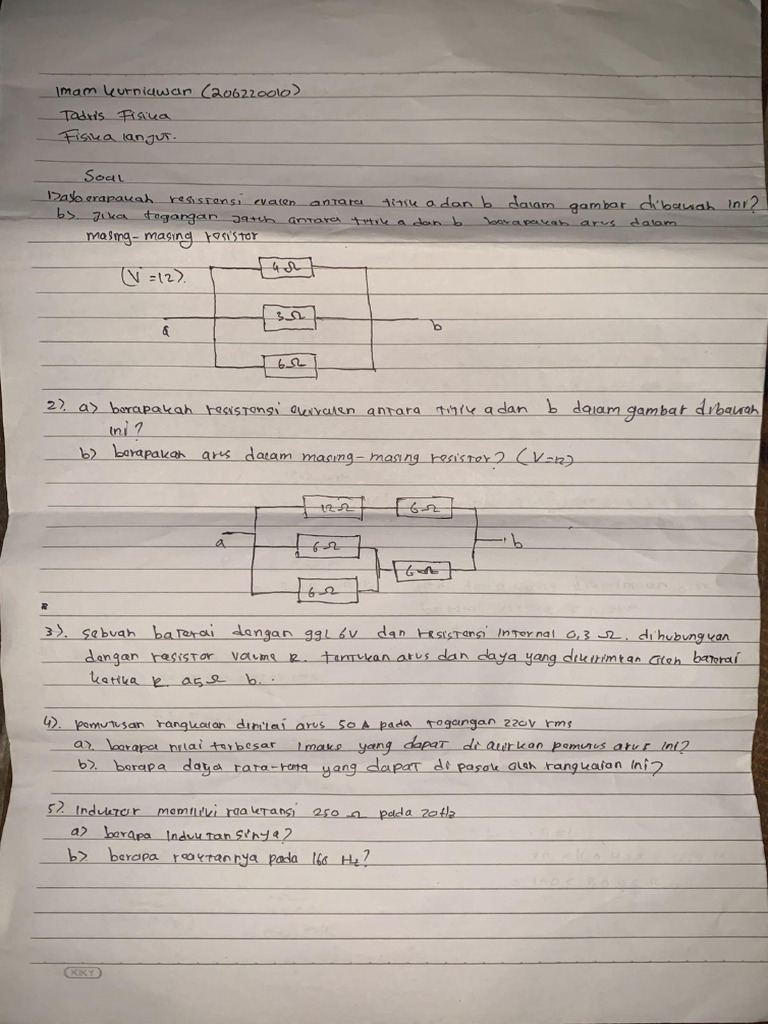 Imam kurniawan (206220010)
Tadris Fisika
Fisika lanjut.
Soal
1) a) berapakah resistensi evalen antara titik a dan b dalam gambar dibawah ini?
b) Jika tegangan jatuh antara titik a dan b berapakah arus dalam
masing-masing resistor
(V=12).
4Ω
3Ω
6Ω
a
b
2). a) berapakah resistensi ekivalen antara titik a dan b dalam gambar dibawah
ini?
b) berapakah arus dalam masing-masing resistor? (V=12)
12Ω
6Ω
a
6Ω
b
6Ω
6Ω
3). sebuah baterai dengan ggl 6V dan resistensi internal 0,3 Ω. dihubungkan
dengan resistor R. tentukan arus dan daya yang dikirimkan oleh baterai
ketika R. a 5Ω b..
4). pemutusan rangkaian dinilai arus 50 A pada tegangan 220V rms
a). berapa nilai terbesar I maks yang dapat di alirkan pemutus arus ini?
b). berapa daya rata-rata yang dapat di pasok oleh rangkaian ini?
5). Induktor memiliki reaktansi 250 Ω pada 20Hz
a) berapa Induktansinya?
b) berapa reaktannya pada 160 Hz?
KIKY